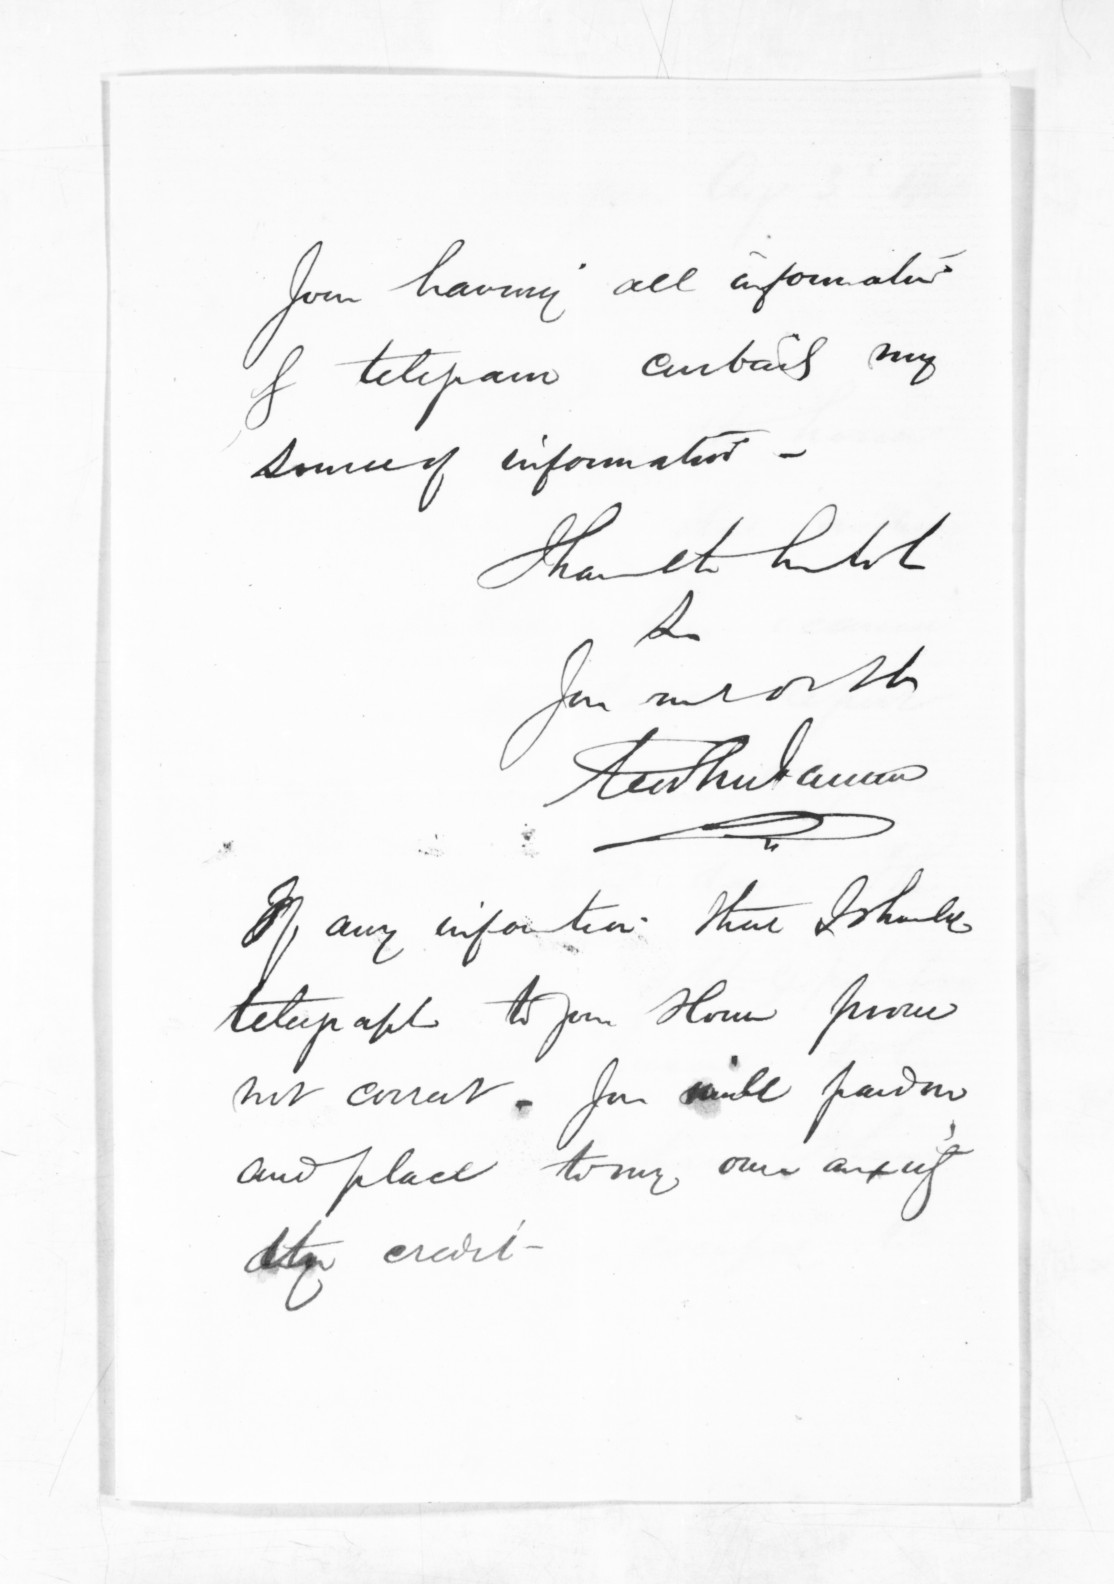 Your having all information
of telegram curtails my
source of information -
I have the honor to be
Sir
Your most obt
If any information that I should
telegraph to your Honor prove
not correct - You will pardon
and place to my own anxiety
credit -